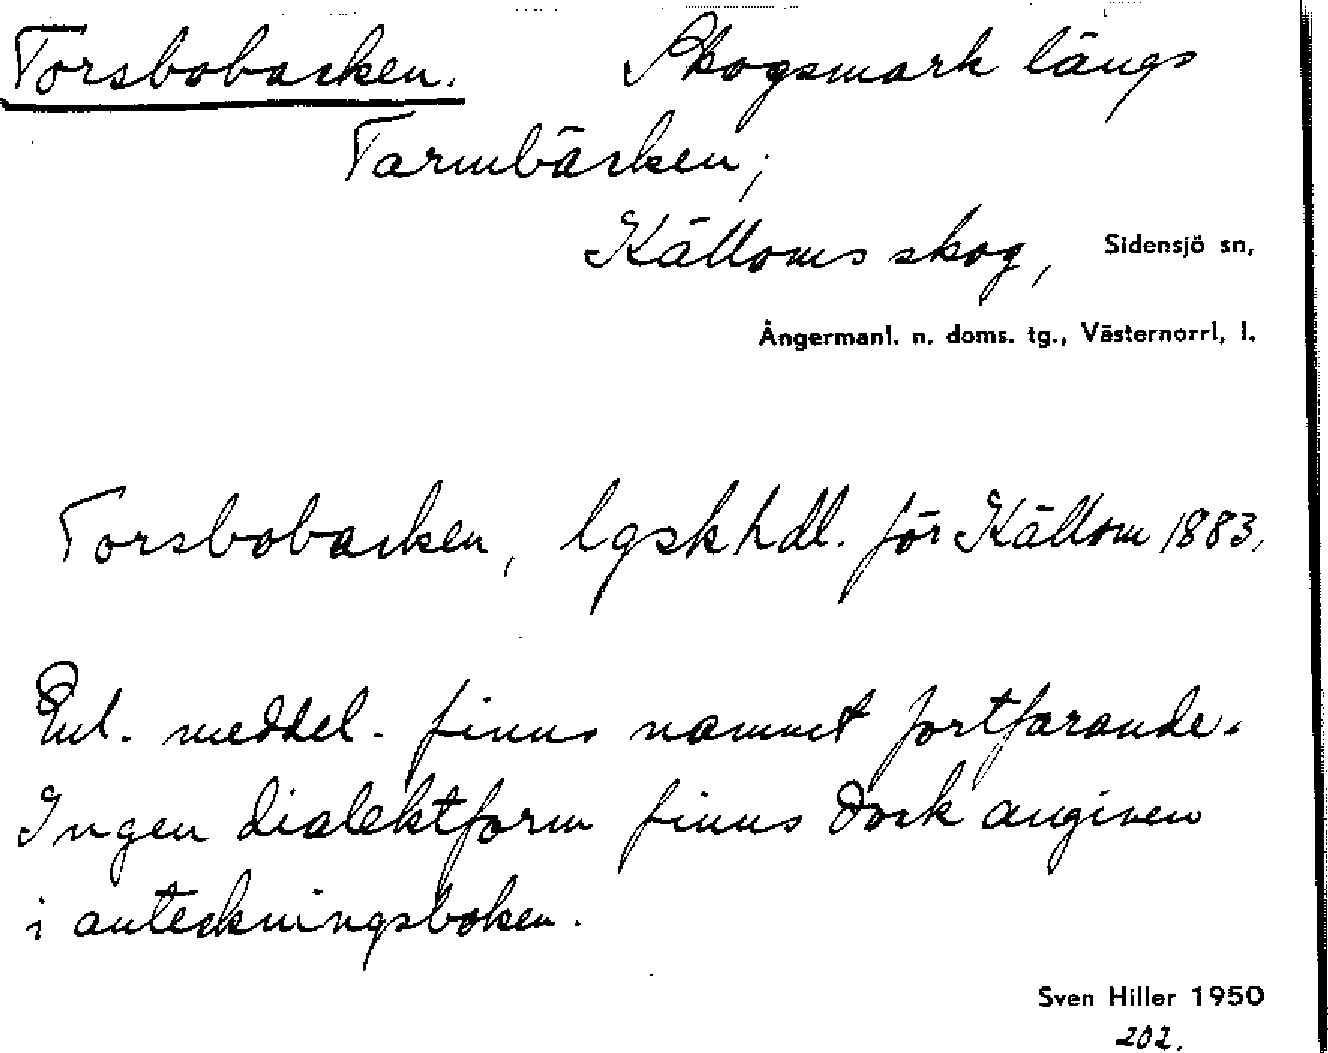 Torsbobacken. Skogsmark längs
Tarmbäcken;
Källoms skog, Sidensjö sn,
Ångermanl. n. doms. tg., Västernorrl. l.
Torsbobacken, lgskhdl. för Källom 1883,
Enl. meddel. finns namnet fortfarande.
Ingen dialektform finns dock angiven
i anteckningsboken.
Sven Hiller 1950
202.